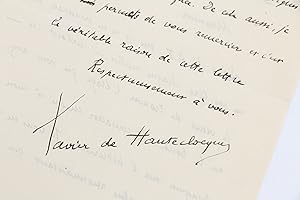 permets de vous remercier et c'est
la véritable raison de cette lettre
Respectueusement à vous.
Xavier de Hauteclocque